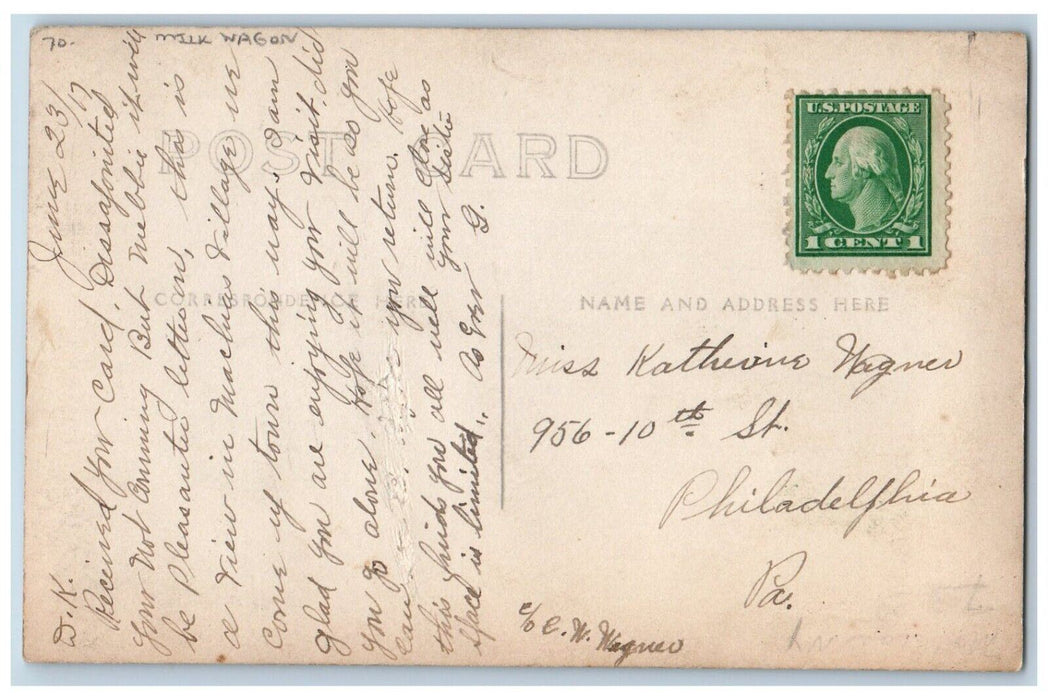 70.
MILK WAGON
POST CARD
U.S. POSTAGE
1 CENT 1
CORRESPONDENCE HERE
NAME AND ADDRESS HERE
June 23/17
D. K.
Received your Card, Dissapointed
your Not Comming But mebbie it will
be Pleasanter latteron, this is
a View in Machus Village we
come my town this way. I am
glad you are enjoying your Visit, did
you go alone. Hope it will be as you
can you return. Hope
this finds you all well will Close as
space is limited,. As Ever your Sister
G.
Miss Katherine Wagner
956-10th St.
Philadelphia
Pa.
c/o C. W. Wagner